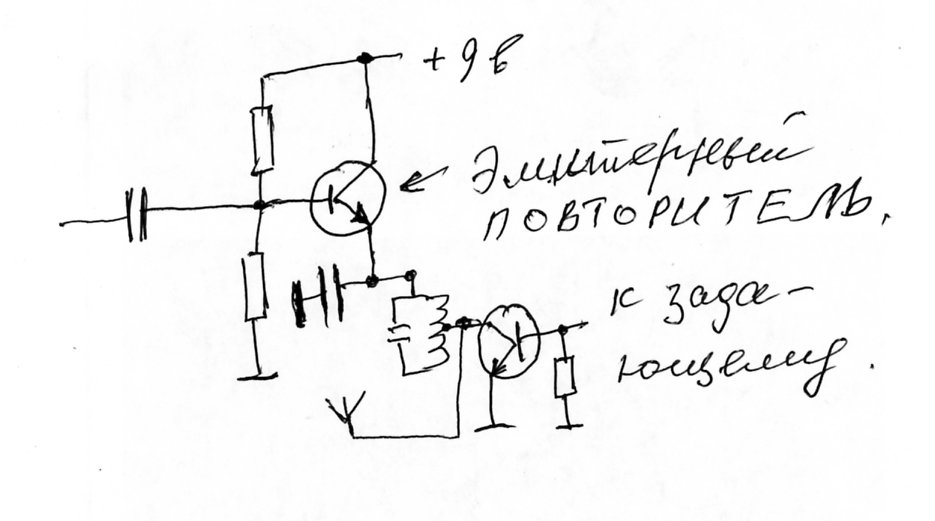 +9в
Эмитерный
ПОВТОРИТЕЛЬ.
к зада-
ющему.